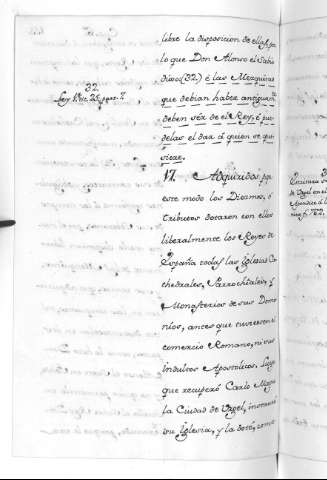 libre la disposicion de ellos, po
lo que Don Alonso el Sabi
dixo (32.) é las Mezquitas
que debian haber antiguam.te
deben sér de el Rey, é pue
delas el dar á quien se qui
siere.
32.
Ley 1. tit. 25. part. 7
17. Adquiridos por
este modo los Diezmos, ó
tributos dotaron con ellos
liberalmente los Reyes de
España todas las Iglesias Ca
thedrales, Parrochiales, y
Monasterios de sus Domi
nios, antes que tuviesen el
comercio Romano, ni sus
Indultos Apostolicos. Luego
que recuperó Carlo Magno
la Ciudad de Urgel,
su Iglesia, y la dotó, como